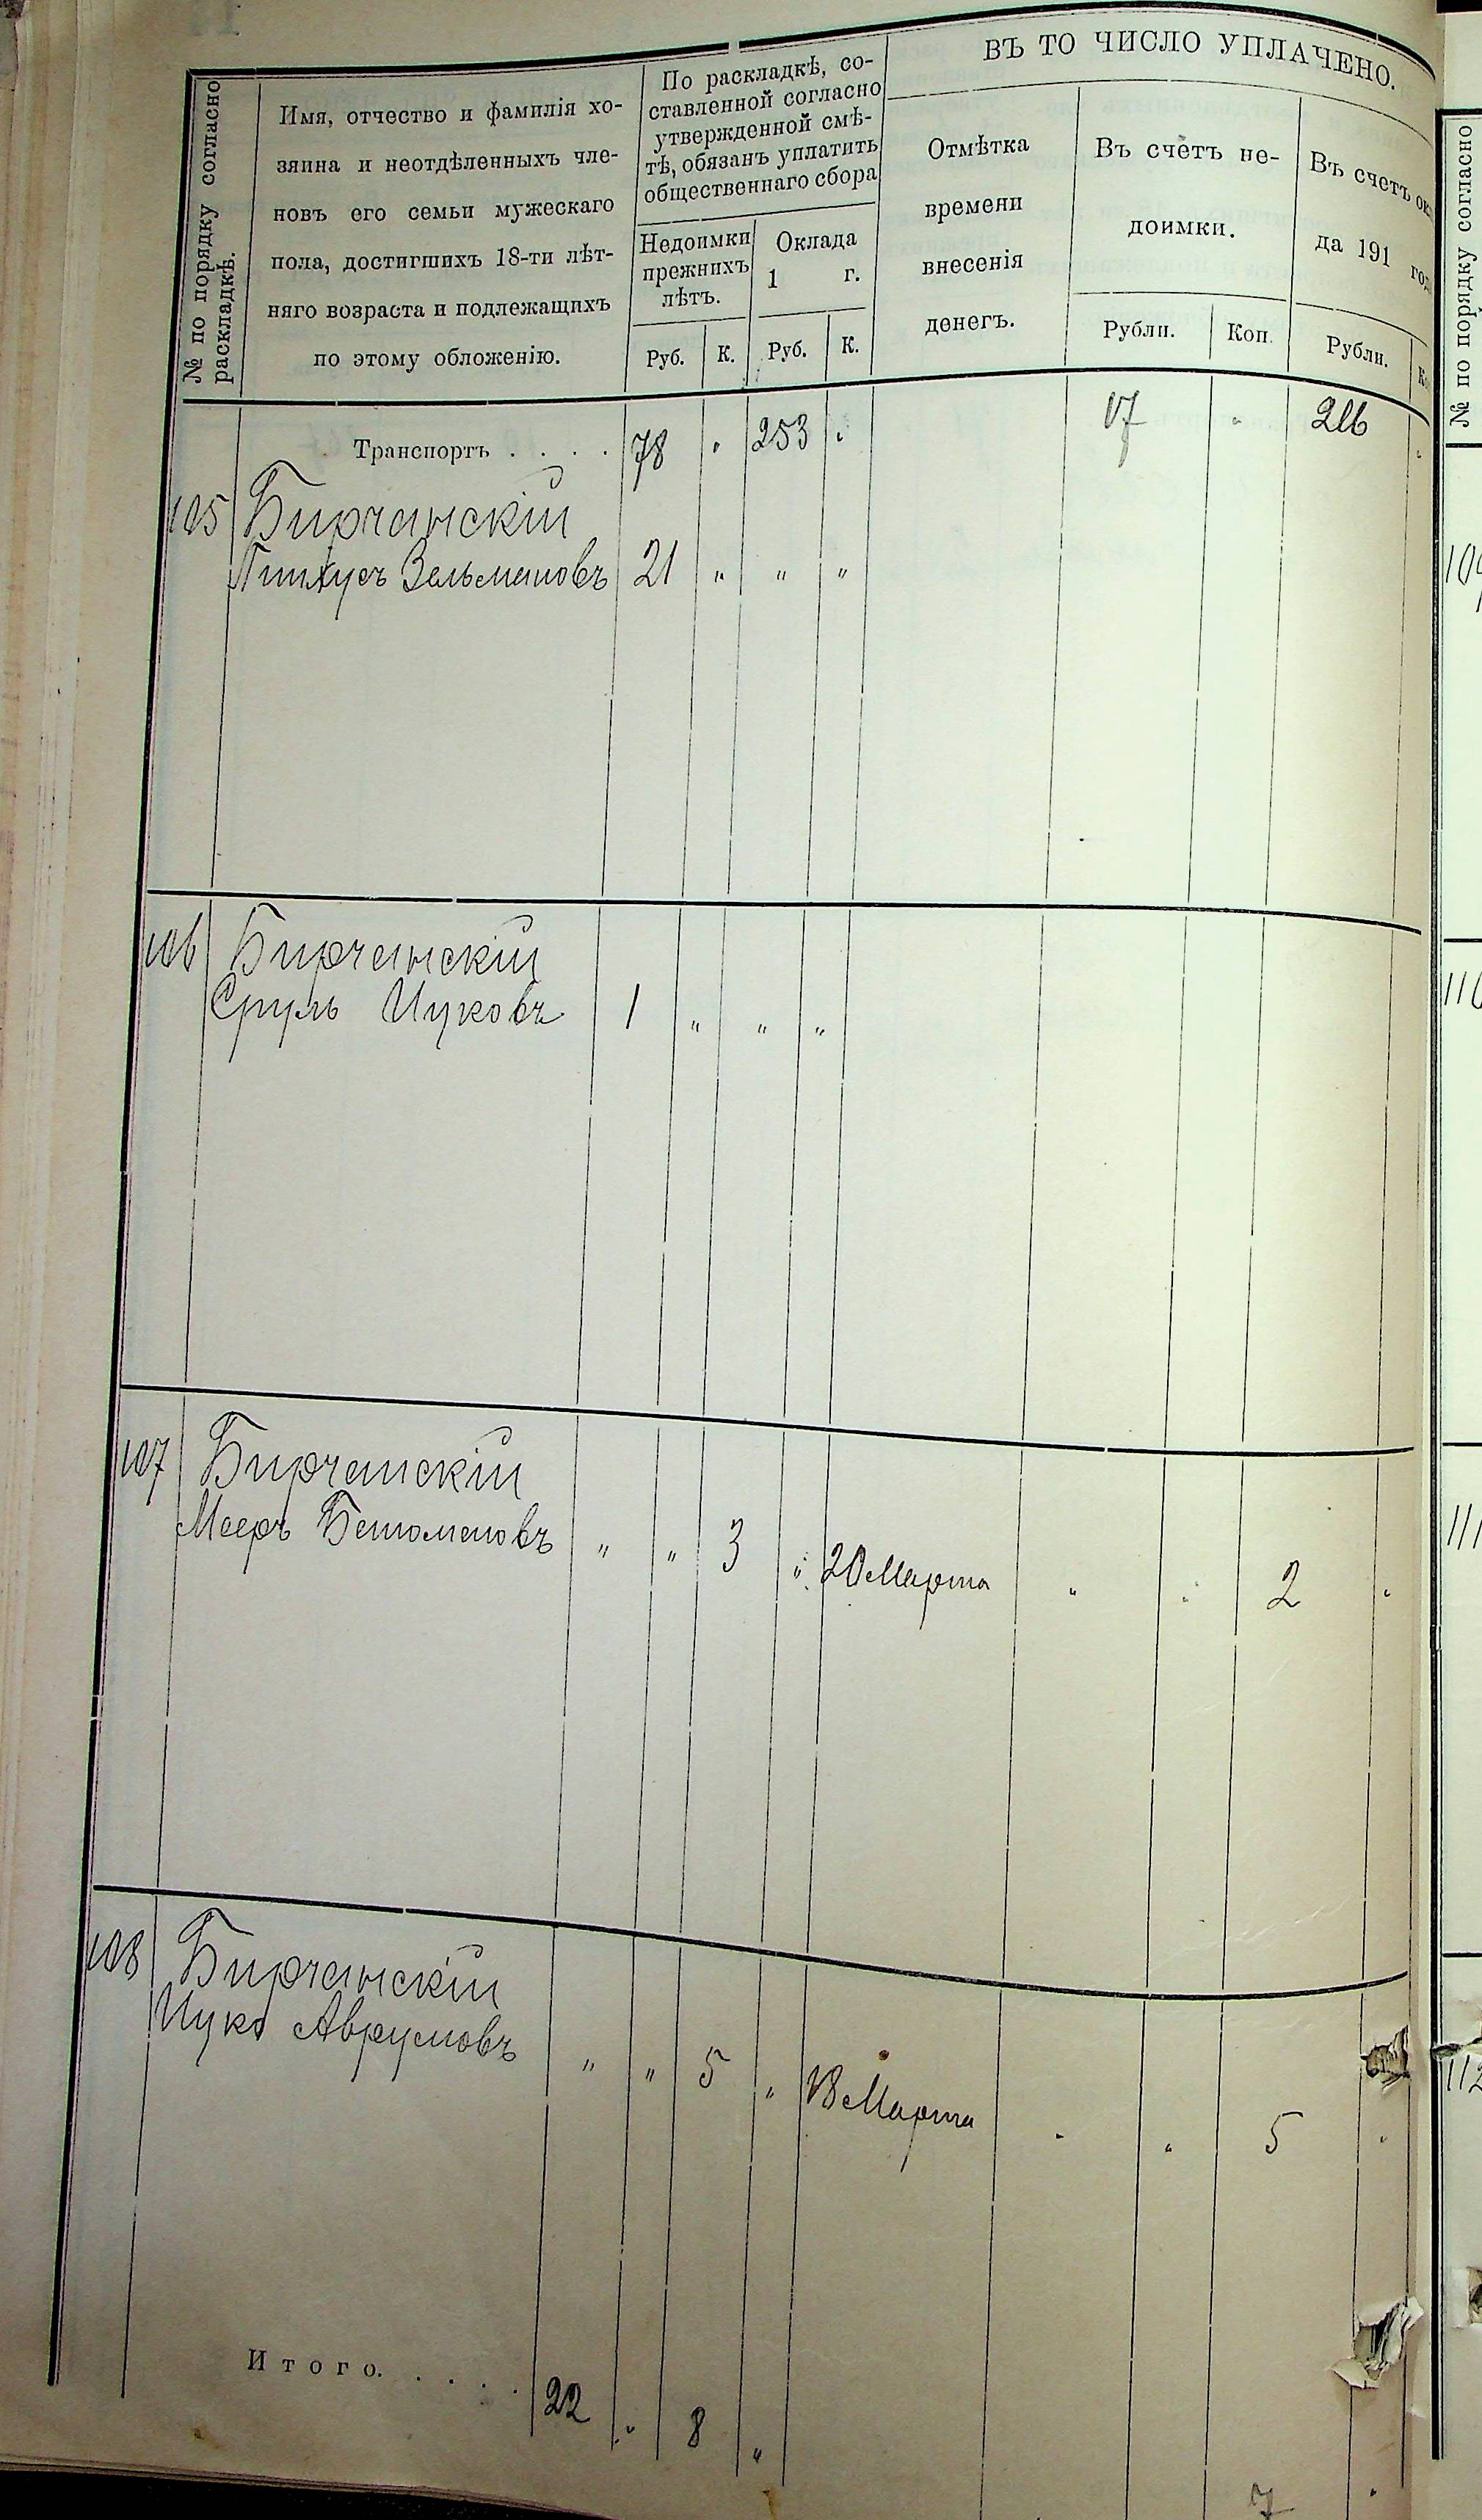 ВЪ ТО ЧИСЛО УПЛАЧЕНО.
№ по порядку согласно
раскладкѣ.
Имя, отчество и фамилія хо-
зяина и неотдѣленныхъ чле-
новъ его семьи мужескаго
пола, достигшихъ 18-ти лѣт-
няго возраста и подлежащихъ
по этому обложенію.
По раскладкѣ, со-
ставленной согласно
утвержденной смѣ-
тѣ, обязанъ уплатить
общественнаго сбора
Недоимки
прежнихъ
лѣтъ.
Оклада
1 г.
Руб. К. Руб. К.
Отмѣтка
времени
внесенія
денегъ.
Въ счетъ не-
доимки.
Рубли. Коп.
Въ счетъ ок
да 191 год
Рубли. Ко
Транспортъ . . . . 78 " 253 " 17 "
105 Бирчанскій
Пинхусъ Зельмановъ 21 " " "
106 Бирчанскій
Сруль Ицковъ 1 " " "
107 Бирчанскій
Мееръ " " 3 " 20 Марта " " 2 "
108 Бирчанскій
Ицко Аврумовъ " " 5 " 18 Марта " " 5 "
Итого. . . . . 22 " 8 "
7 "
№ по порядку согласно
109
110
111
112